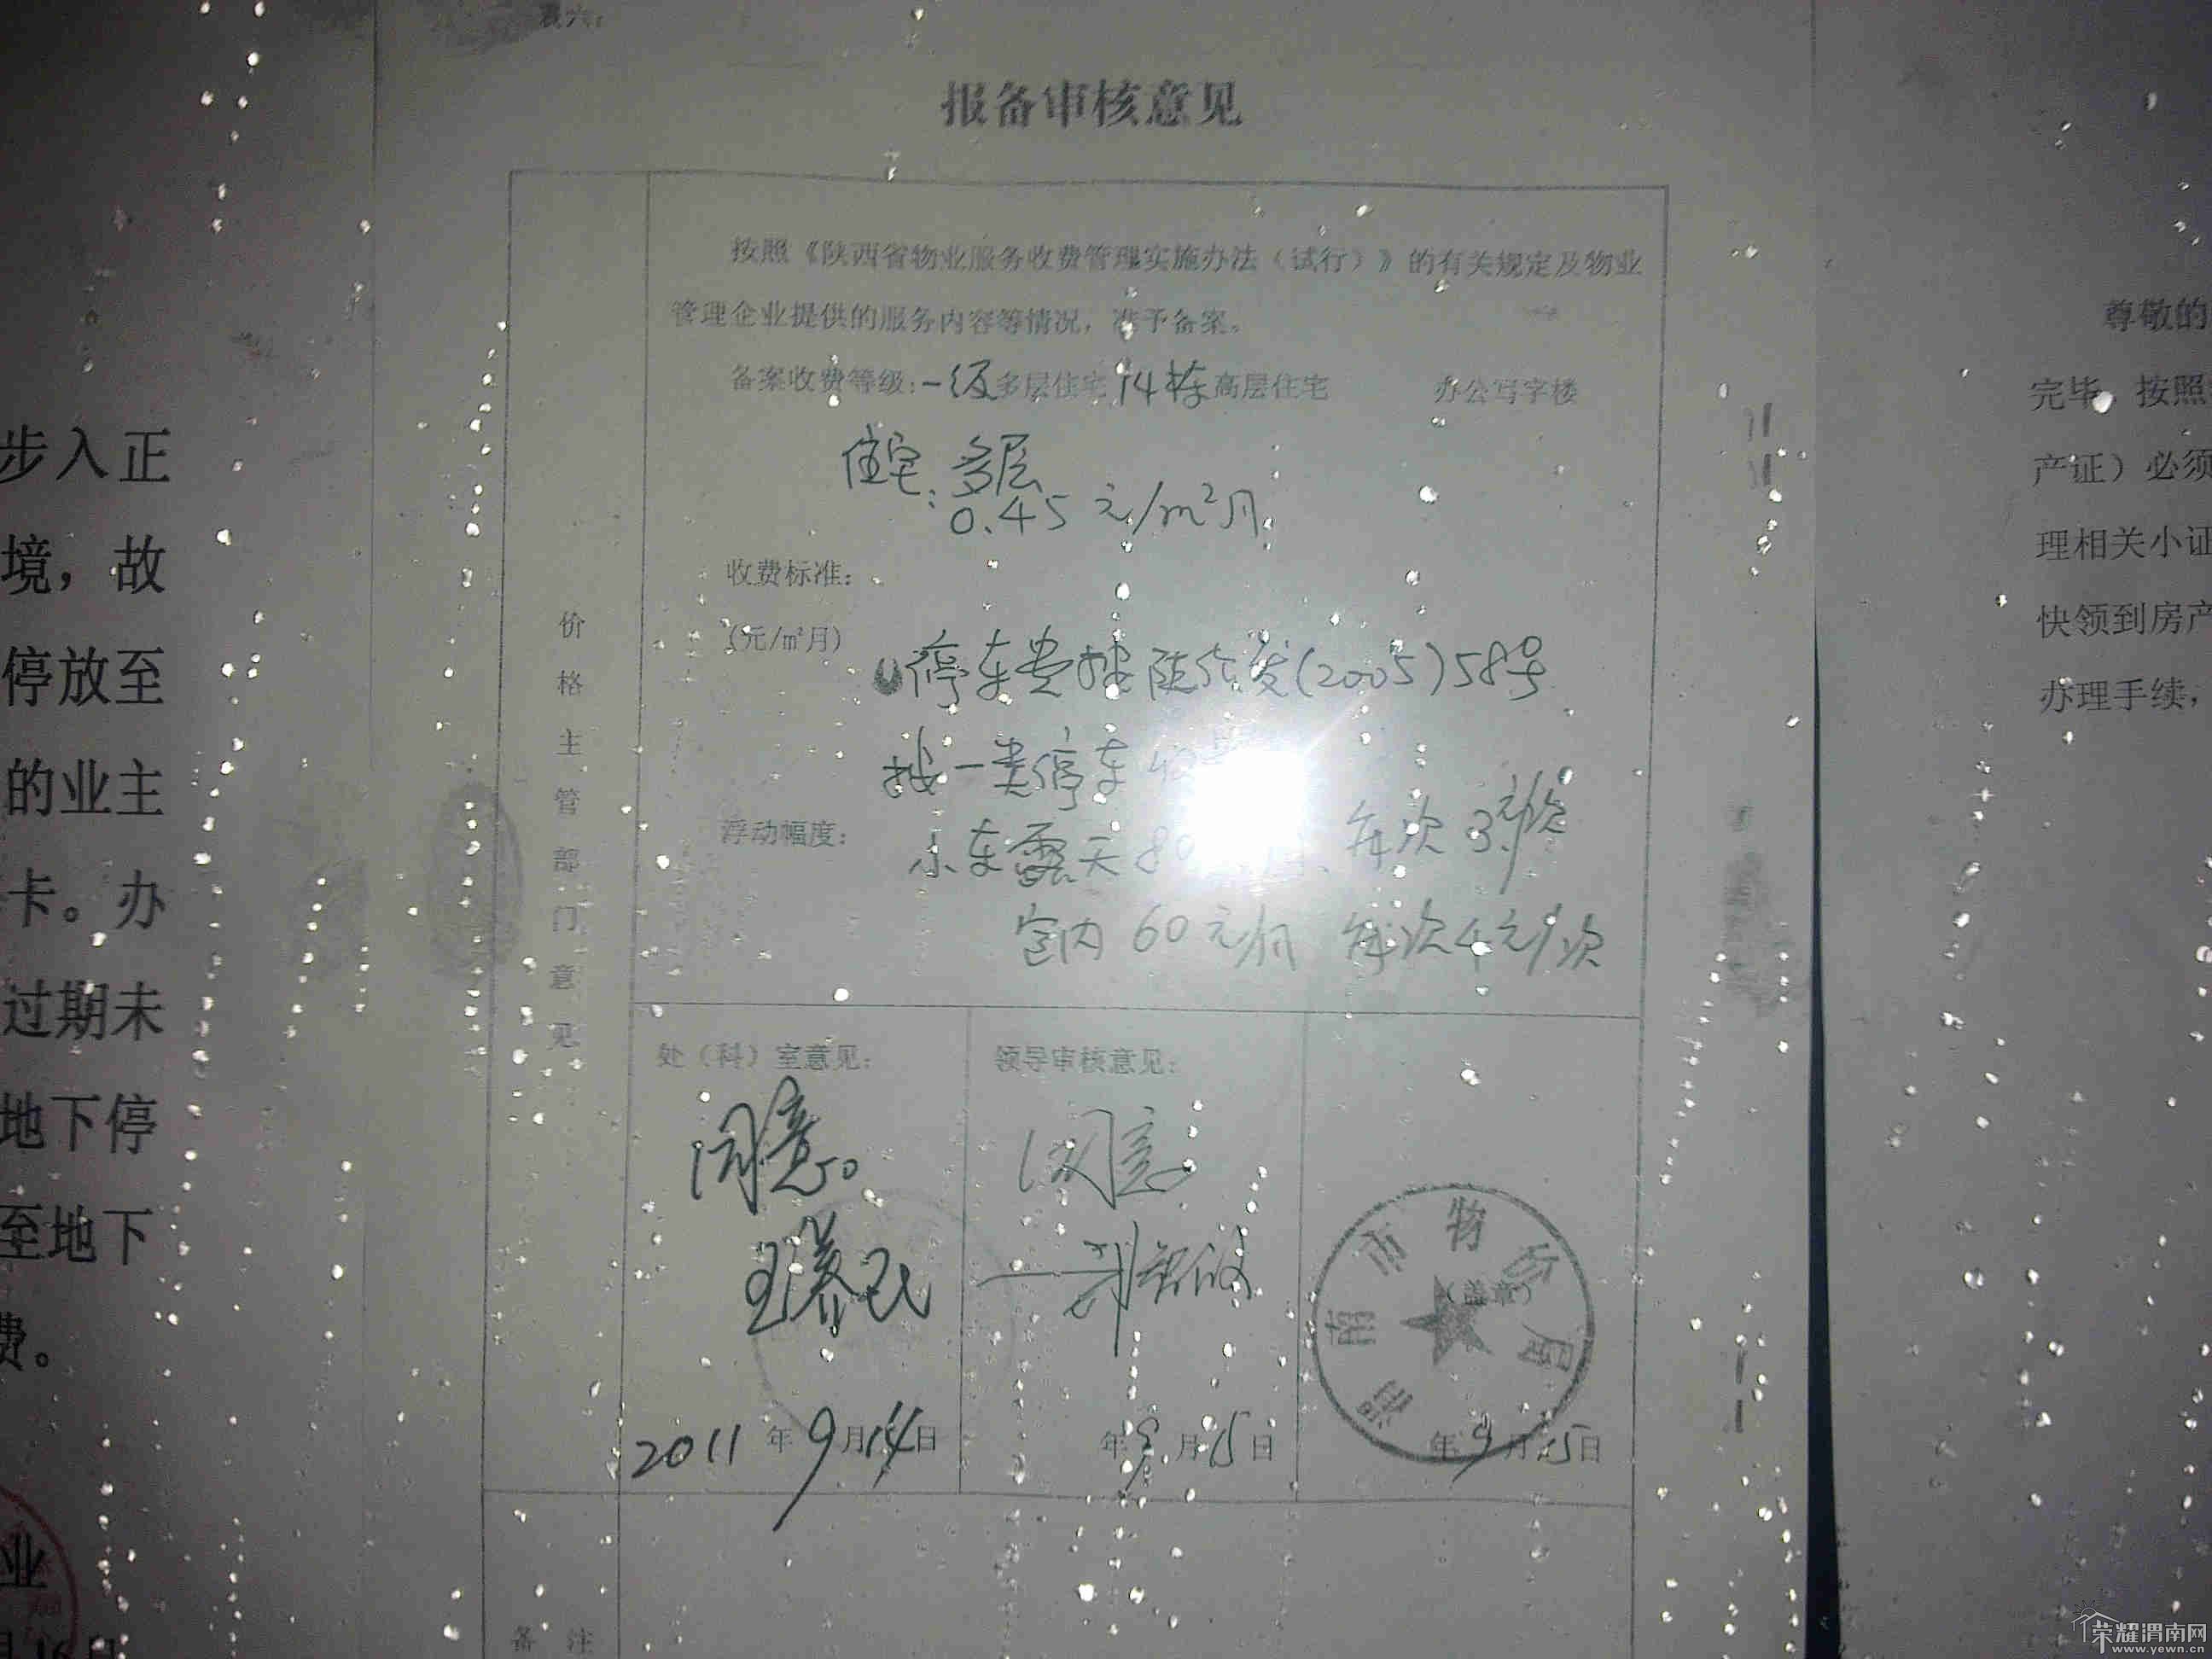 表六:
报备审核意见
按照《陕西省物业服务收费管理实施办法（试行）》的有关规定及物业
管理企业提供的服务内容等情况，准予备案。
备案收费等级:一级多层住宅14栋高层住宅 办公写字楼
住宅:多层
0.45元/m²月
收费标准:
(元/㎡月)
停车费按陕价发(2005)58号
按一类停车
浮动幅度:
小车露天80 每次3元/次
室内60元/月 每次4元/次
价格主管部门意见
处（科）室意见:
同意。
2011年9月14日
领导审核意见:
同意
年9月15日
渭南市物价局
（盖章）
年9月15日
备注
步入正
境，故
停放至
的业主
卡。办
过期未
地下停
至地下
费。
业
尊敬的
完毕，按照
产证）必须
理相关小证
快领到房产
办理手续，
荣耀渭南网
www.yewn.cn